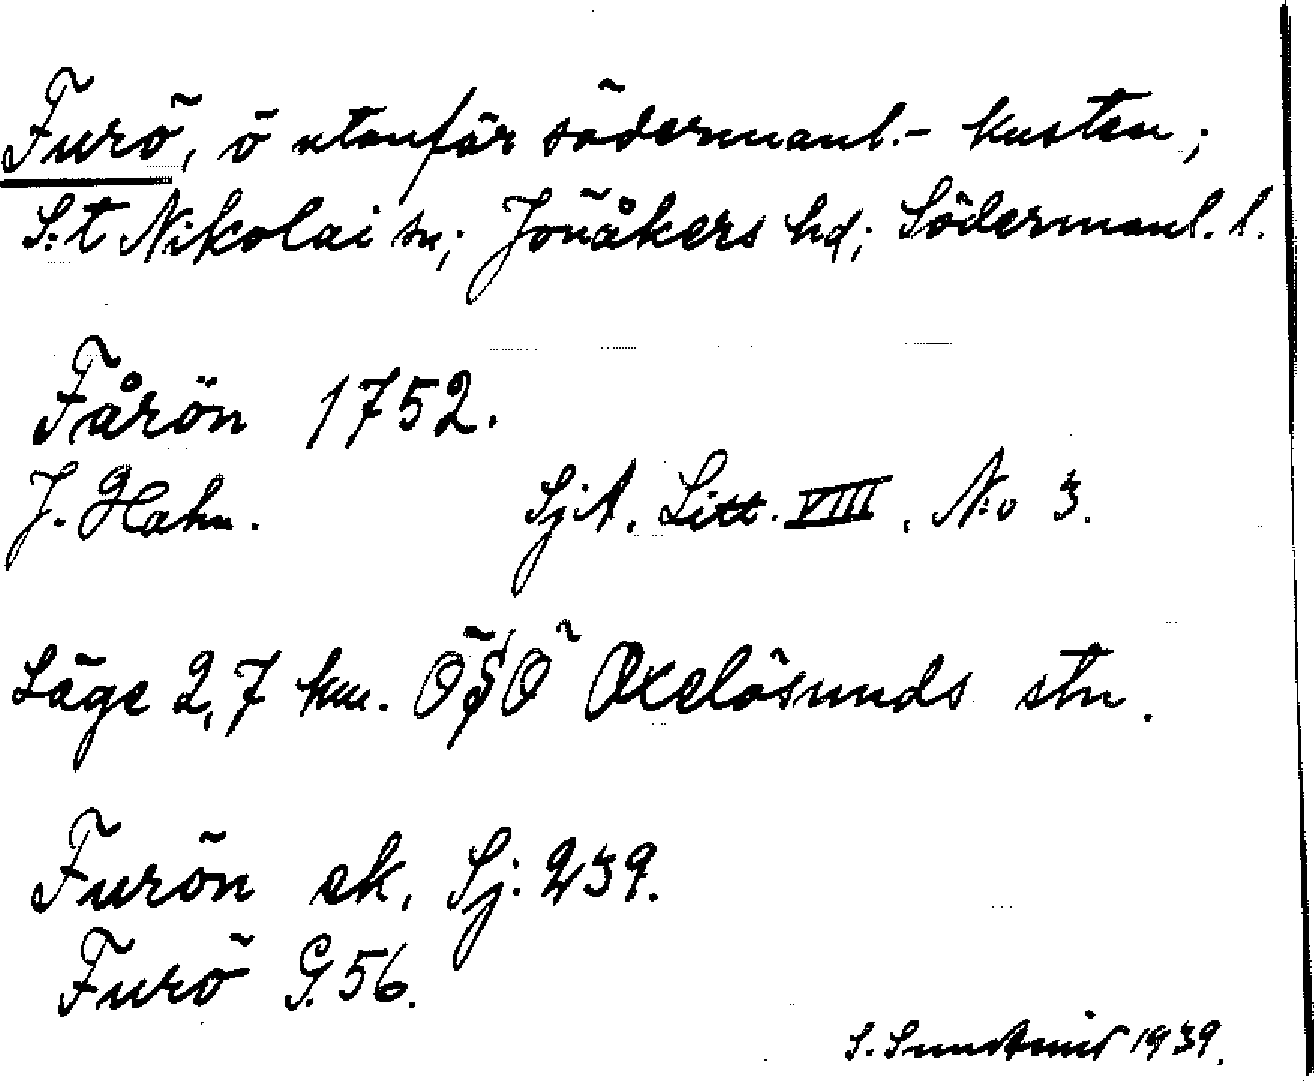 Furö, ö utanför södermanl.- kusten;
S:t Nikolai sn; Jönåkers hd; Södermanl. l.
Fårön 1752.
J. Hahn. SjA. Litt. VIII, N:o 3.
Läge 2,7 km. ÖSÖ Oxelösunds stn.
Furön ek. Sj. 239.
Furö G. 56.
S. 1939.